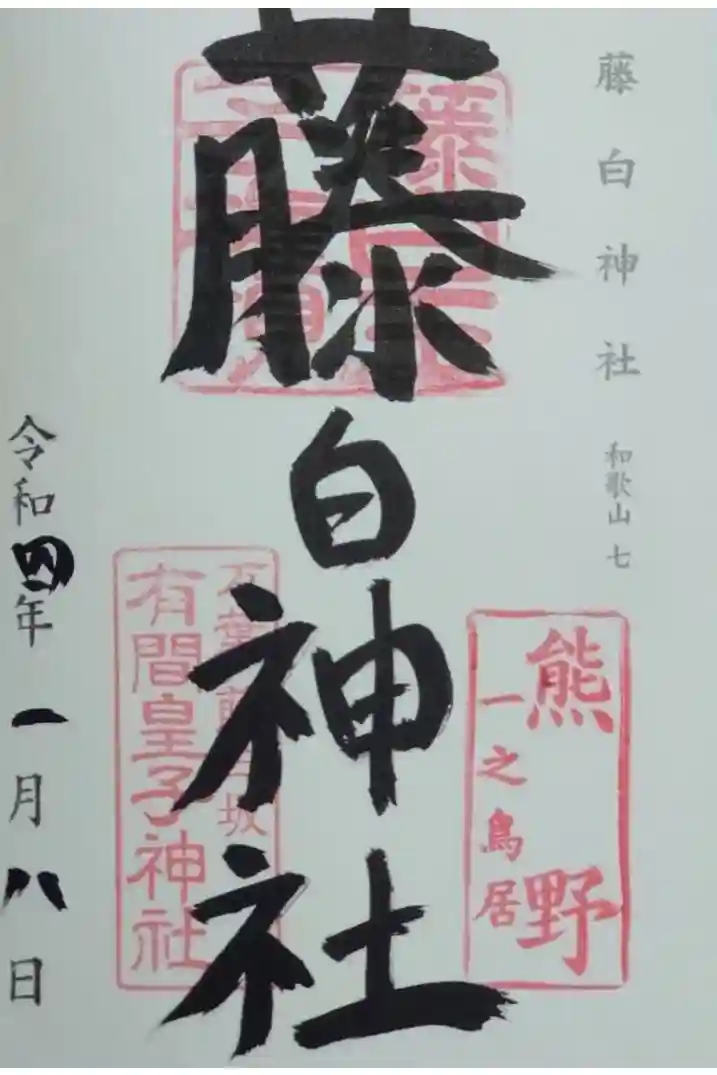 藤白神社
和歌山 七
藤白神社
熊野
一之鳥居
万葉 藤白坂
有間皇子神社
令和四年一月八日